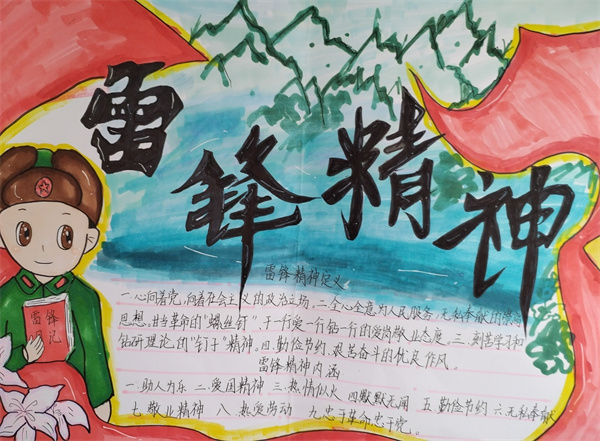 雷锋精神
雷锋
日记
雷锋精神定义
一.心向着党,向着社会主义的政治立场,二全心全意为人民服务,无私奉献的崇高
思想。甘当革命的"螺丝钉",干一行爱一行钻一行的爱岗敬业态度。三 刻苦学习和
钻研理论的"钉子"精神。四.勤俭节约、艰苦奋斗的优良作风。
雷锋精神内涵
一.助人为乐 二.爱国精神 三.热情似火 四默默无闻 五 勤俭节约 六无私奉献
七 敬业精神 八 热爱劳动 九忠于革命忠于党。